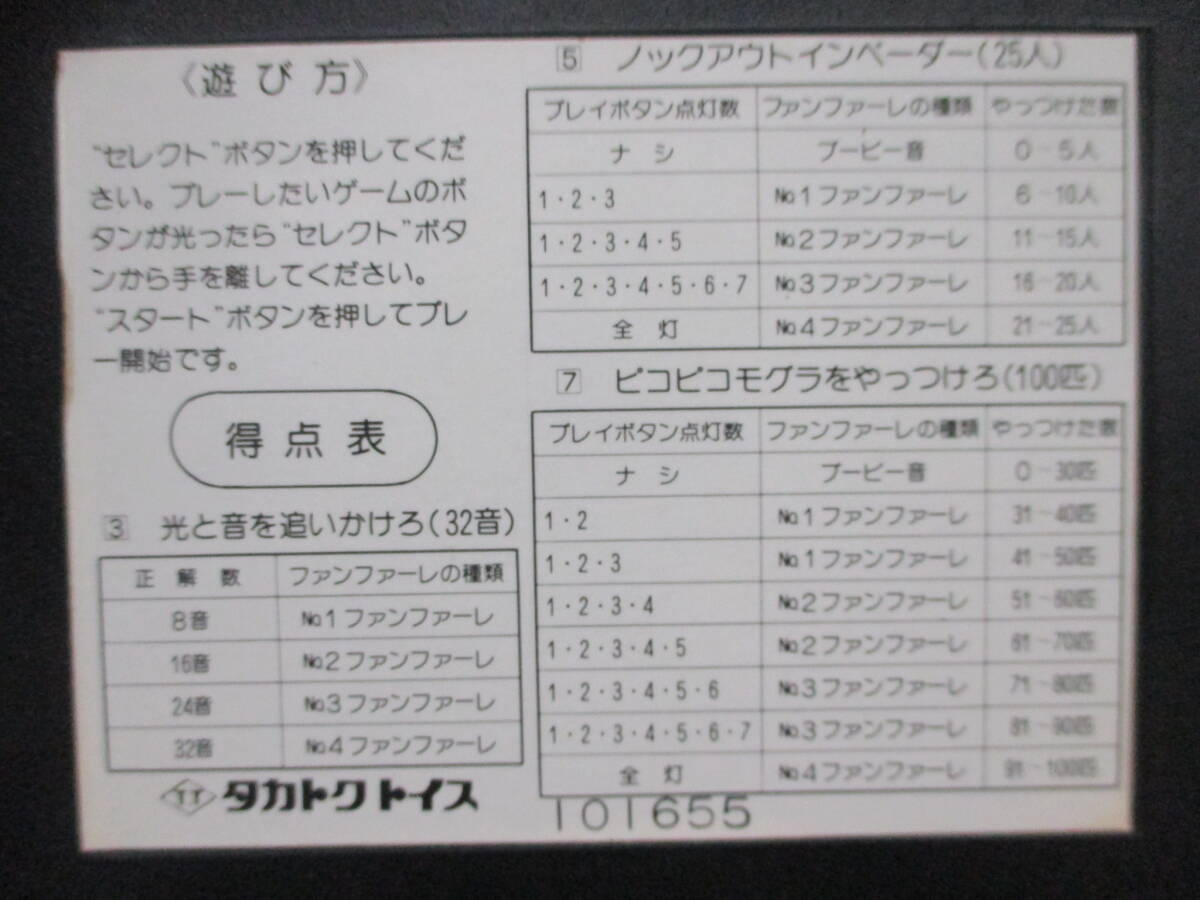 《遊び方》
“セレクト”ボタンを押してくだ
さい。プレーしたいゲームのボ
タンが光ったら“セレクト”ボタ
ンから手を離してください。
“スタート”ボタンを押してプレ
ー開始です。
得点表
3 光と音を追いかけろ(32音)
正解数 ファンファーレの種類
8音 №1ファンファーレ
16音 №2ファンファーレ
24音 №3ファンファーレ
32音 №4ファンファーレ
TT タカトクトイス
5 ノックアウトインベーダー(25人)
プレイボタン点灯数 ファンファーレの種類 やっつけた数
ナシ ブービー音 0-5人
1・2・3 №1ファンファーレ 6-10人
1・2・3・4・5 №2ファンファーレ 11-15人
1・2・3・4・5・6・7 №3ファンファーレ 16-20人
全灯 №4ファンファーレ 21-25人
7 ピコピコモグラをやっつけろ(100匹)
プレイボタン点灯数 ファンファーレの種類 やっつけた数
ナシ ブービー音 0-30匹
1・2 №1ファンファーレ 31-40匹
1・2・3 №1ファンファーレ 41-50匹
1・2・3・4 №2ファンファーレ 51-60匹
1・2・3・4・5 №2ファンファーレ 61-70匹
1・2・3・4・5・6 №3ファンファーレ 71-80匹
1・2・3・4・5・6・7 №3ファンファーレ 81-90匹
全灯 №4ファンファーレ 91-100匹
101655